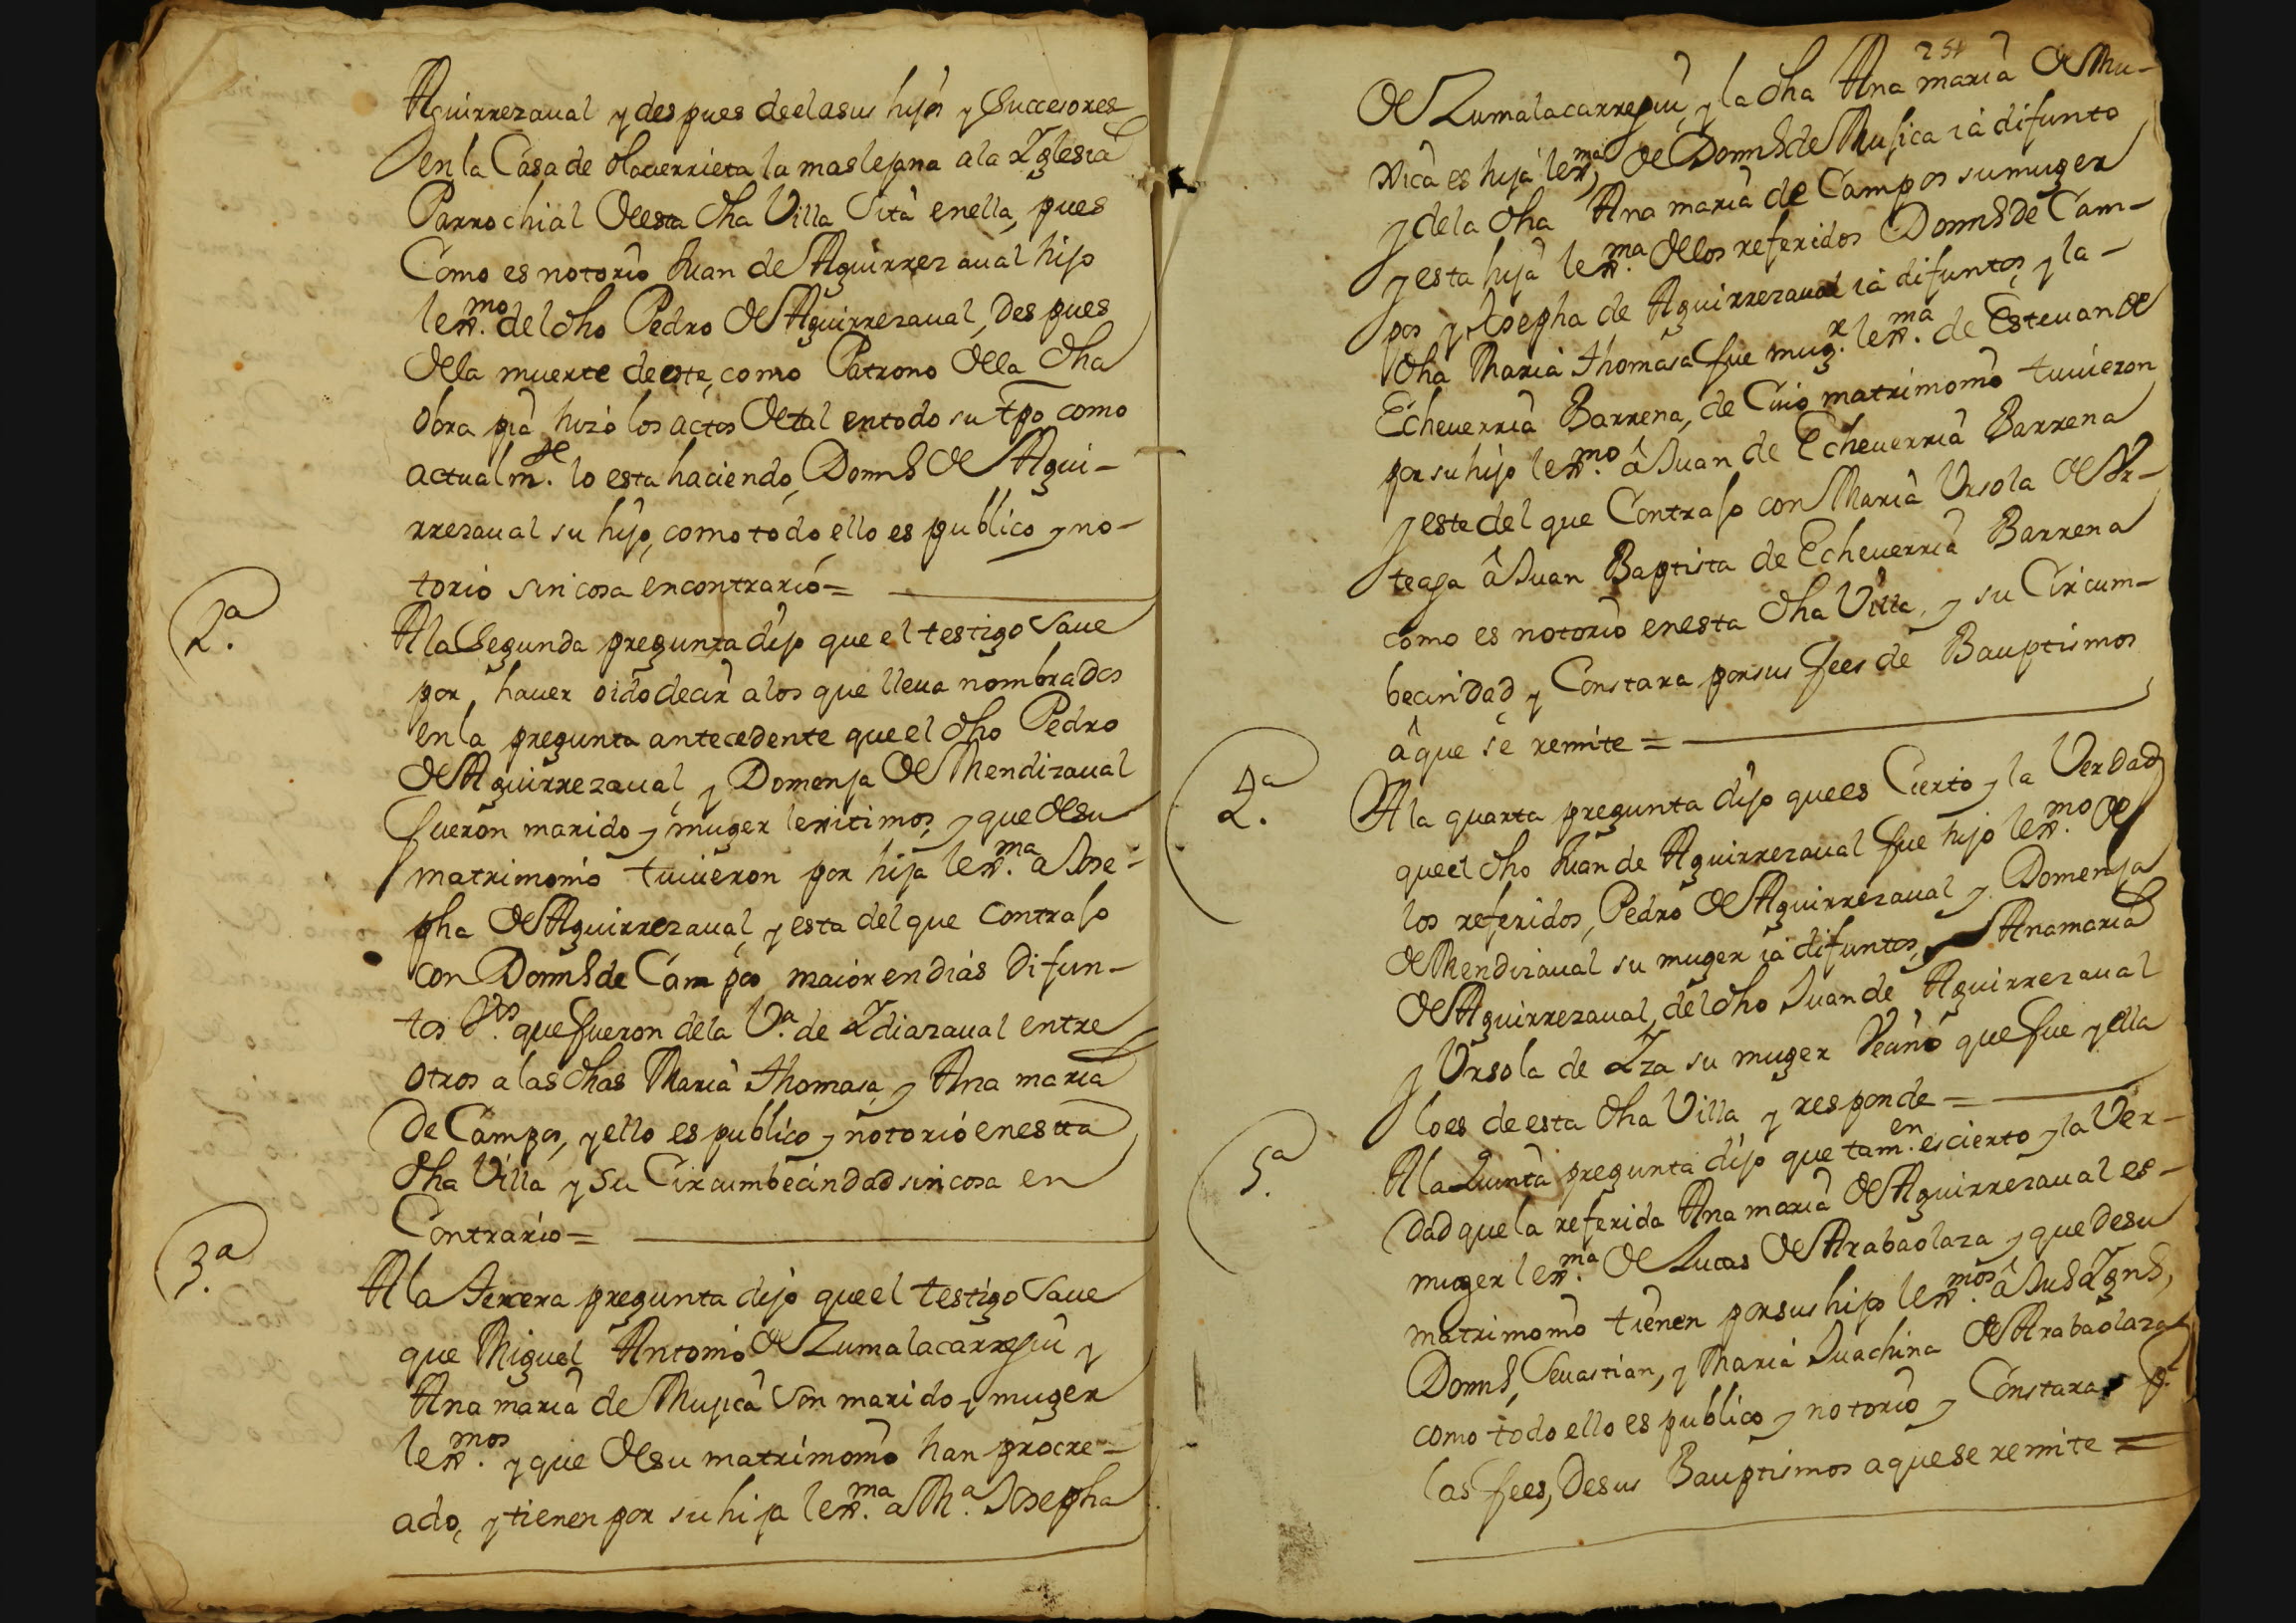 Aguirrezaual y despues deel a sus hijos y Succesores
en la Casa de Olauerrieta la mas lejana ala Yglesia
Parrochial de esta dha Villa Sita en ella, pues
Como es notorio Juan de Aguirrezaual hijo
lexmo. del dho Pedro de Aguirrezaual, despues
de la muerte de este, como Patrono de la dha
obra pia hizo los actos de tal en todo su tpo como
actualmte. lo esta haciendo, Domns de Agui-
rrezaual su hijo, como todo ello es publico y no-
torio sin cosa en contrario =
2.a
A la Segunda pregunta dijo que el testigo Saue
por, hauer oido decir a los que lleua nombrados
en la pregunta antecedente que el dho Pedro
de Aguirrezaual, y Domenja de Mendizaual
fueron marido y muger lexitimos, y que de su
matrimonio tuuieron por hija lexma. a Jose-
pha de Aguirrezaual, y esta del que contrajo
con Domns de Campos maior en dias difun-
tos Vos. que fueron de la Va. de Ydiazaual entre
otros a las dhas Maria Thomasa, y Ana maria
de Campos, y ello es publico y notorio en esta
dha Villa y su Circumbecindad sin cosa en
Contrario =
3.a
A la Tercera pregunta dijo que el testigo Saue
que Miguel Antonio de Zumalacarregui y
Ana maria de Mujica Son marido y muger
lexmos. y que de su matrimonio han procre-
ado, y tienen por su hija lexma. a Ma. Josepha
254
de Zumalacarregui, y la dha Ana maria de Mu-
xica es hija lexma, de Domns de Musica ia difunto
y de la dha Ana maria de Campos su muger
y esta hija lexma. de los referidos Domns de Cam-
pos y Josepha de Aguirrezaual ia difuntos, y la-
dha Maria Thomasa fue mugr. lexma. de Esteuan de
Echeuerria Barrena, de Cuio matrimonio tuuieron
por su hijo lexmo. â Juan de Echeuerria Barrena
y este del que Contrajo con Maria Vrsola de Ar-
teaga â Juan Baptista de Echeuerria Barrena
como es notorio en esta dha Villa, y su Circum-
becindad y Constara por sus fees de Bauptismos
â que se remite =
4.a
A la quarta pregunta dijo que es Cierto y la Verdad
que el dho Juan de Aguirrezaual fue hijo lexmo. de
los referidos, Pedro de Aguirrezaual y Domenja
de Mendizaual su muger ia difuntos, y Ana maria
de Aguirrezaual, del dho Juan de Aguirrezaual
y Vrsola de Yza su muger Vecino que fue y ella
lo es de esta dha Villa y responde =
5.a
A la Quinta pregunta dijo que tamen. es cierto y la Ver-
dad que la referida Ana maria de Aguirrezaual es-
muger lexma. de Lucas de Arabaolaza y que de su
matrimonio tienen por sus hijos lexmos. â Jus Ygns,
Domns, Seuastian, y Maria Juachina de Arabaolaza
como todo ello es publico y notorio y Constara pr.
las fees, de sus Bauptismos a que se remite =